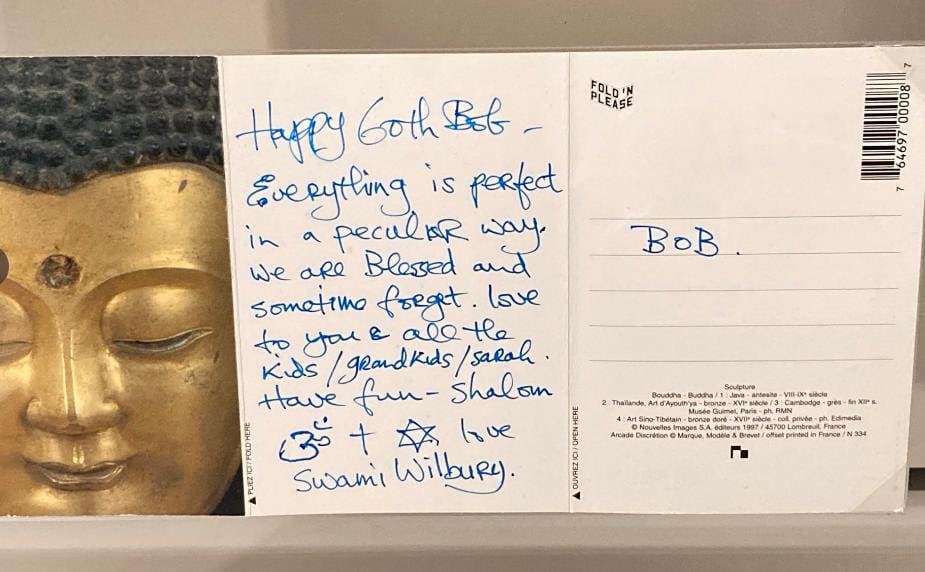 Happy 60th Bob -
Everything is perfect
in a peculiar way.
We are Blessed and
sometime forget. love
to you & all the
kids/grandkids/sarah.
Have fun - Shalom
ॐ + ✡ love
Swami Wilbury.
▲ PLIEZ ICI / FOLD HERE
▲ OUVREZ ICI / OPEN HERE
FOLD'N
PLEASE
7 64697 00008 7
BOB.
Sculpture
Bouddha - Buddha / 1 : Java - antesite - VIII-IXᵉ siècle
2 : Thaïlande, Art d'Ayouth'ya - bronze - XVIᵉ siècle / 3 : Cambodge - grès - fin XIIᵉ s.
Musée Guimet, Paris - ph. RMN
4 : Art Sino-Tibétain - bronze doré - XVIIᵉ siècle - coll. privée - ph. Edimedia
© Nouvelles Images S.A. éditeurs 1997 / 45700 Lombreuil, France
Arcade Discrétion © Marque, Modèle & Brevet / offset printed in France / N 334